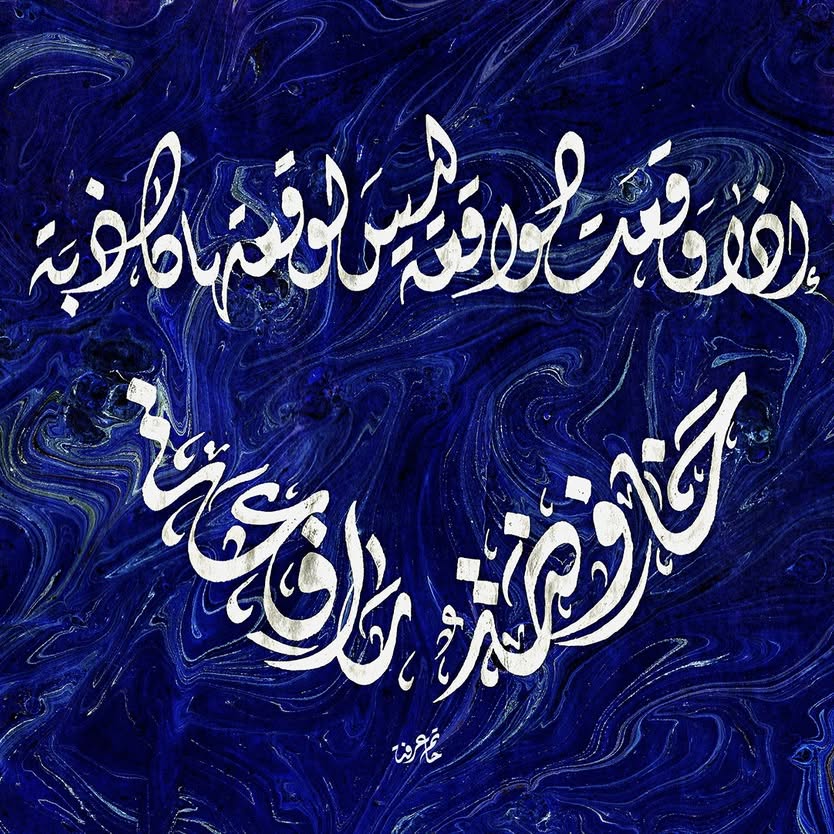 إذا وقعت الواقعة ليس لوقعتها كاذبة
خافضة رافعة
حاتم عرفة